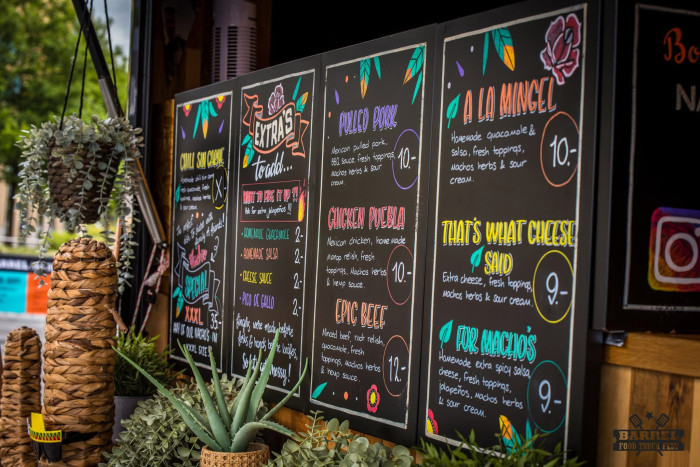 CHILI SIN CARNE
X
SPECIAL
XXXL
EXTRA'S
to add...
WANT TO FIRE IT UP?
Ask for extra jalapeños!!
HOMEMADE GUACAMOLE 2,-
HOMEMADE SALSA 2,-
CHEESE SAUCE 2,-
PICO DE GALLO 2,-
PULLED PORK
Mexican pulled pork,
BBQ sauce, fresh toppings,
nachos herbs & sour
cream.
10.-
CHICKEN PUEBLA
Mexican chicken, home made
mango relish, fresh
toppings, nachos herbs
& sour cream.
10.-
EPIC BEEF
Minced beef, nut relish,
guacamole, fresh
toppings, nachos herbs
& hemp sauce.
12.-
A LA MINGEL
Homemade guacamole &
salsa, fresh toppings,
nachos herbs & sour
cream.
10.-
THAT'S WHAT CHEESE
SAID
Extra cheese, fresh toppings,
nachos herbs & sour cream.
9.-
FOR MACHO'S
Homemade extra spicy salsa,
cheese, fresh toppings,
jalapeños, nachos herbs
& sour cream.
9.-
BARREL
FOOD TRUCK FEST